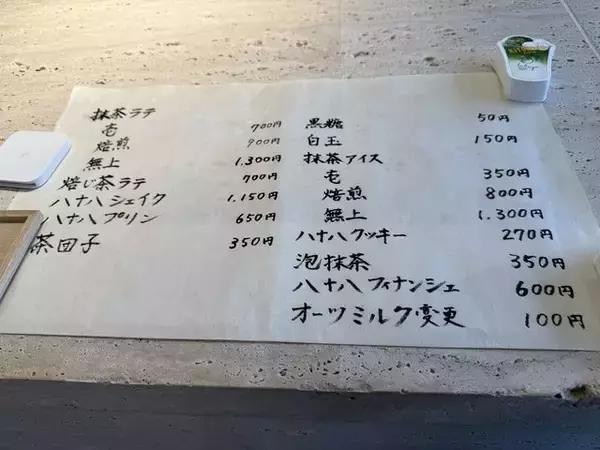 抹茶ラテ
壱 700円
焙煎 900円
無上 1,300円
焙じ茶ラテ 700円
八十八シェイク 1,150円
八十八プリン 650円
茶団子 350円
黒糖 50円
白玉 150円
抹茶アイス
壱 350円
焙煎 800円
無上 1,300円
八十八クッキー 270円
泡抹茶 350円
八十八フィナンシェ 600円
オーツミルク変更 100円